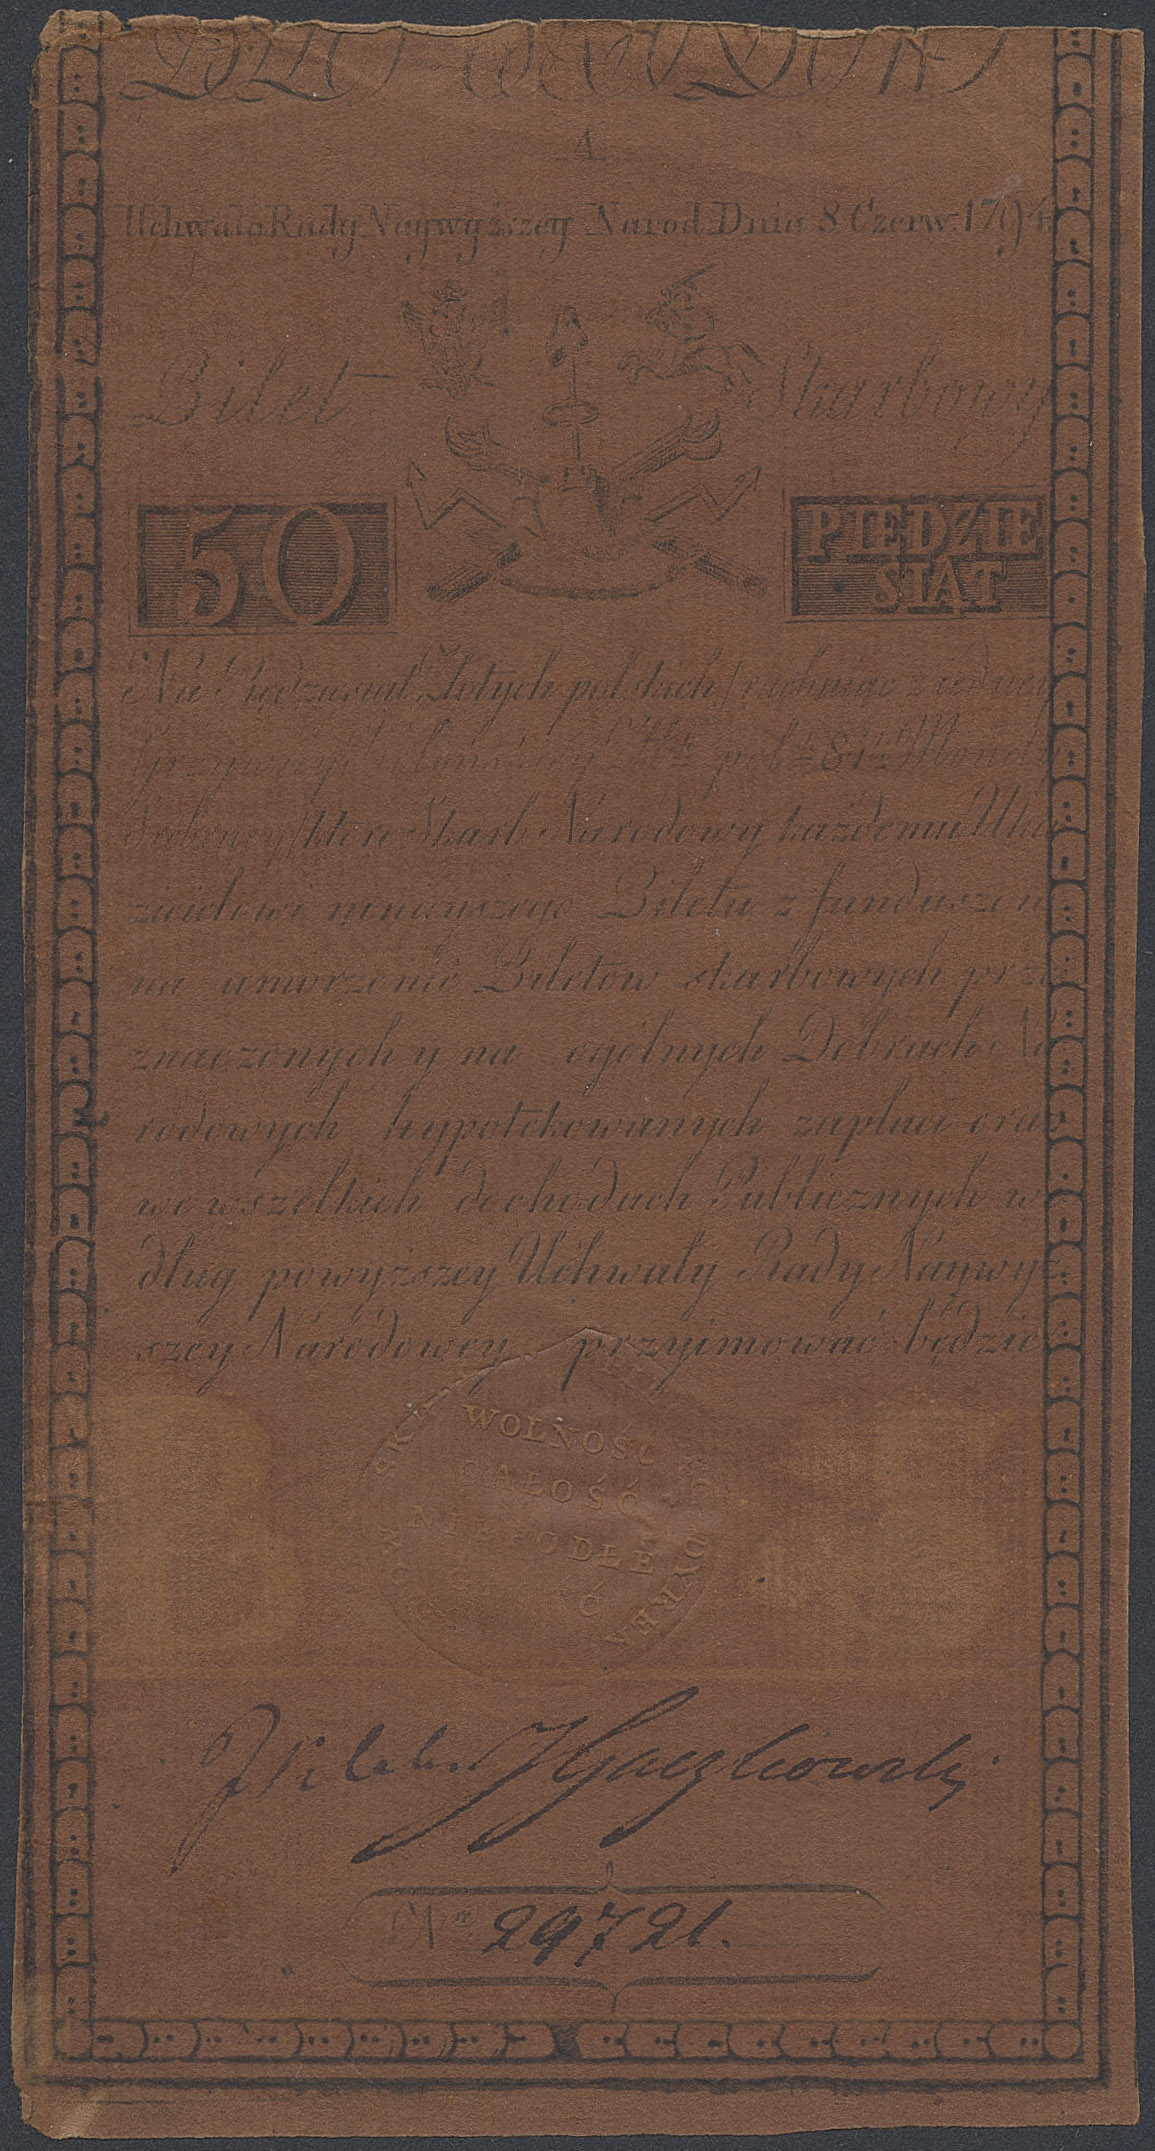 A
Uchwała Rady Naywyższey Narod. Dnia 8 Czerw: 1794
Bilet Skarbowy
50 PIEDZIE
SIAT
Na Pięćdziesiąt Złotych polskich rachuiąc z iedney
Grzywny Kolońskiey Złł: pol: 84½ Monety
Srebrney które Skarb Narodowy każdemu Oka
zicielowi ninieyszego Biletu z funduszów
na umorzenie Biletów skarbowych prze
znaczonych y na ogólnych Dobrach Na
rodowych hypotekowanych zapłaci oraz
we wszelkich dochodach Publicznych w
dług powyższey Uchwały Rady Naywyż
szey Narodowey przyjmować będzie
WOLNOŚĆ
CAŁOŚĆ
NIEPODLE
DYREK
J Gaczkowski
N° 29721.